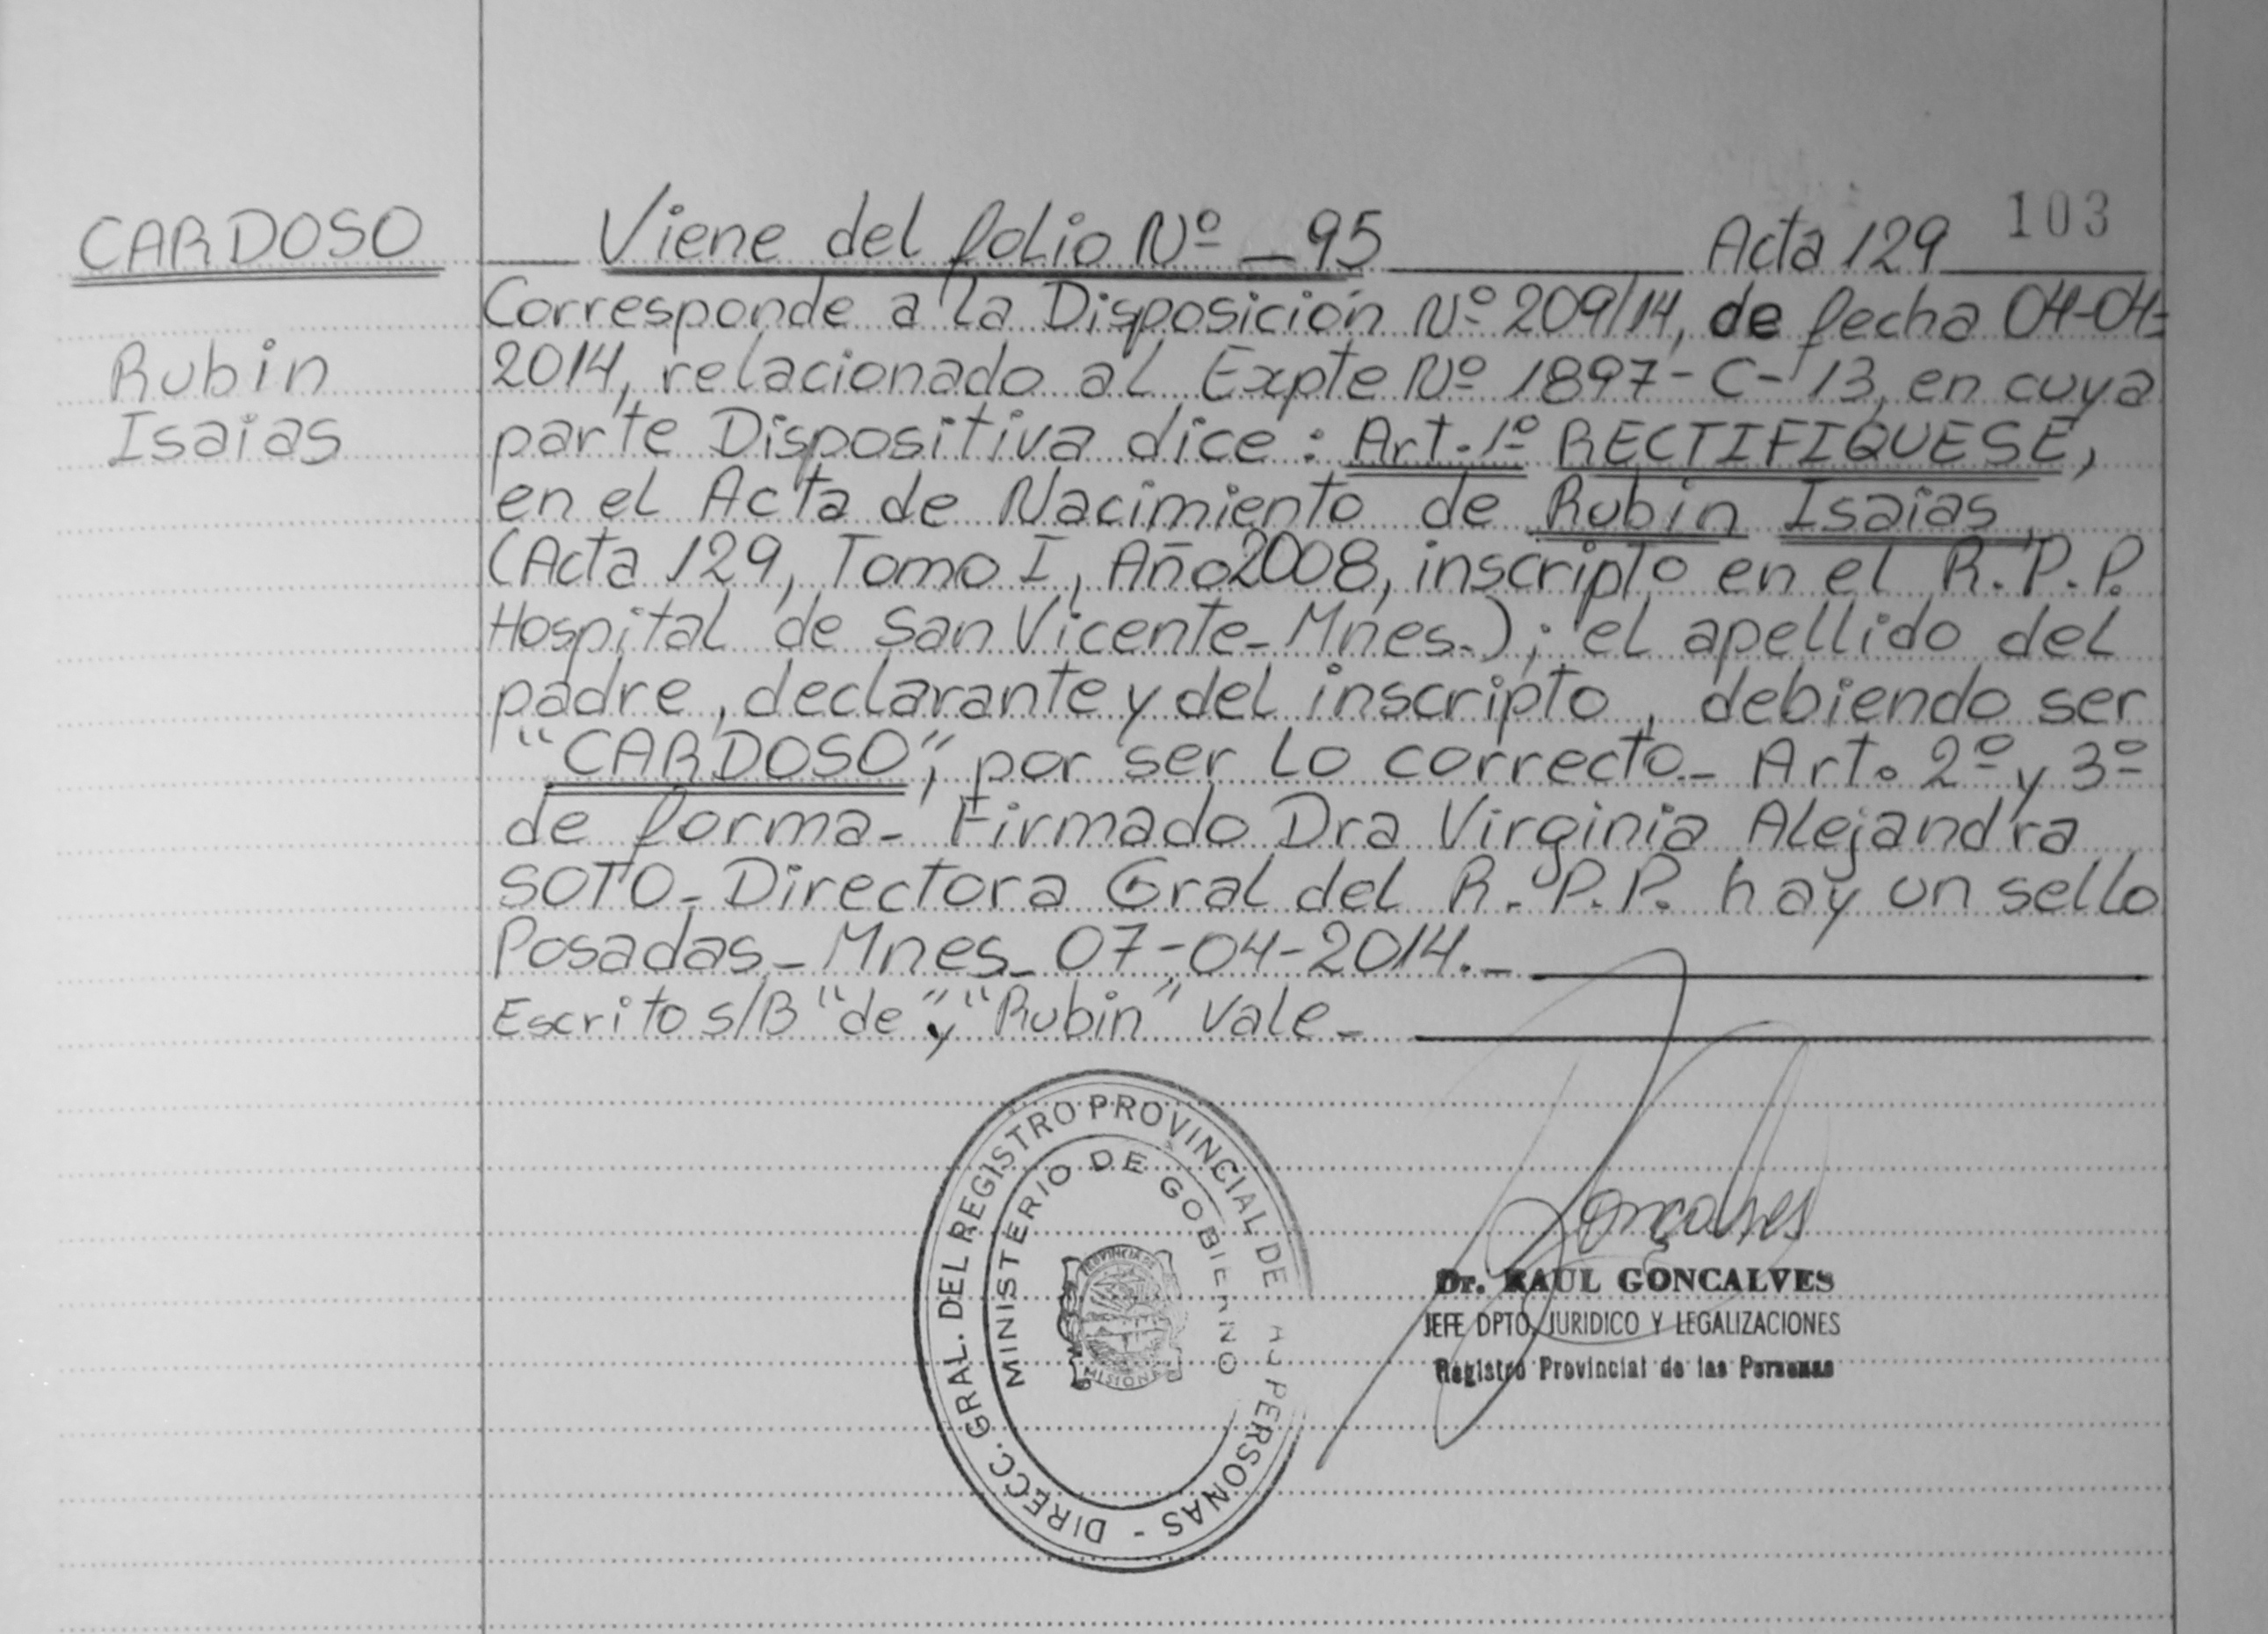 CARDOSO
Rubin
Isaias
Viene del folio Nº _ 95 Acta 129 103
Corresponde a la Disposición Nº 209/14, de fecha 04-04-
2014, relacionado al Expte Nº 1897-C-13, en cuya
parte Dispositiva dice: Art.1º RECTIFIQUESE,
en el Acta de Nacimiento de Rubin Isaias
(Acta 129, Tomo I, Año 2008, inscripto en el R.P.P.
Hospital de San Vicente-Mnes.); el apellido del
padre, declarante y del inscripto, debiendo ser
"CARDOSO", por ser lo correcto_ Art. 2º y 3º
de forma- Firmado Dra Virginia Alejandra
SOTO_ Directora Gral del R.P.P. hay un sello
Posadas_ Mnes_ 07-04-2014._
Escrito s/B "de", "Rubin" Vale_
DIRECC. GRAL. DEL REGISTRO PROVINCIAL DE PERSONAS -
MINISTERIO DE GOBIERNO
PROVINCIA DE
MISIONES
Gonçalves
Dr. RAUL GONCALVES
JEFE DPTO JURIDICO Y LEGALIZACIONES
Registro Provincial de las Personas